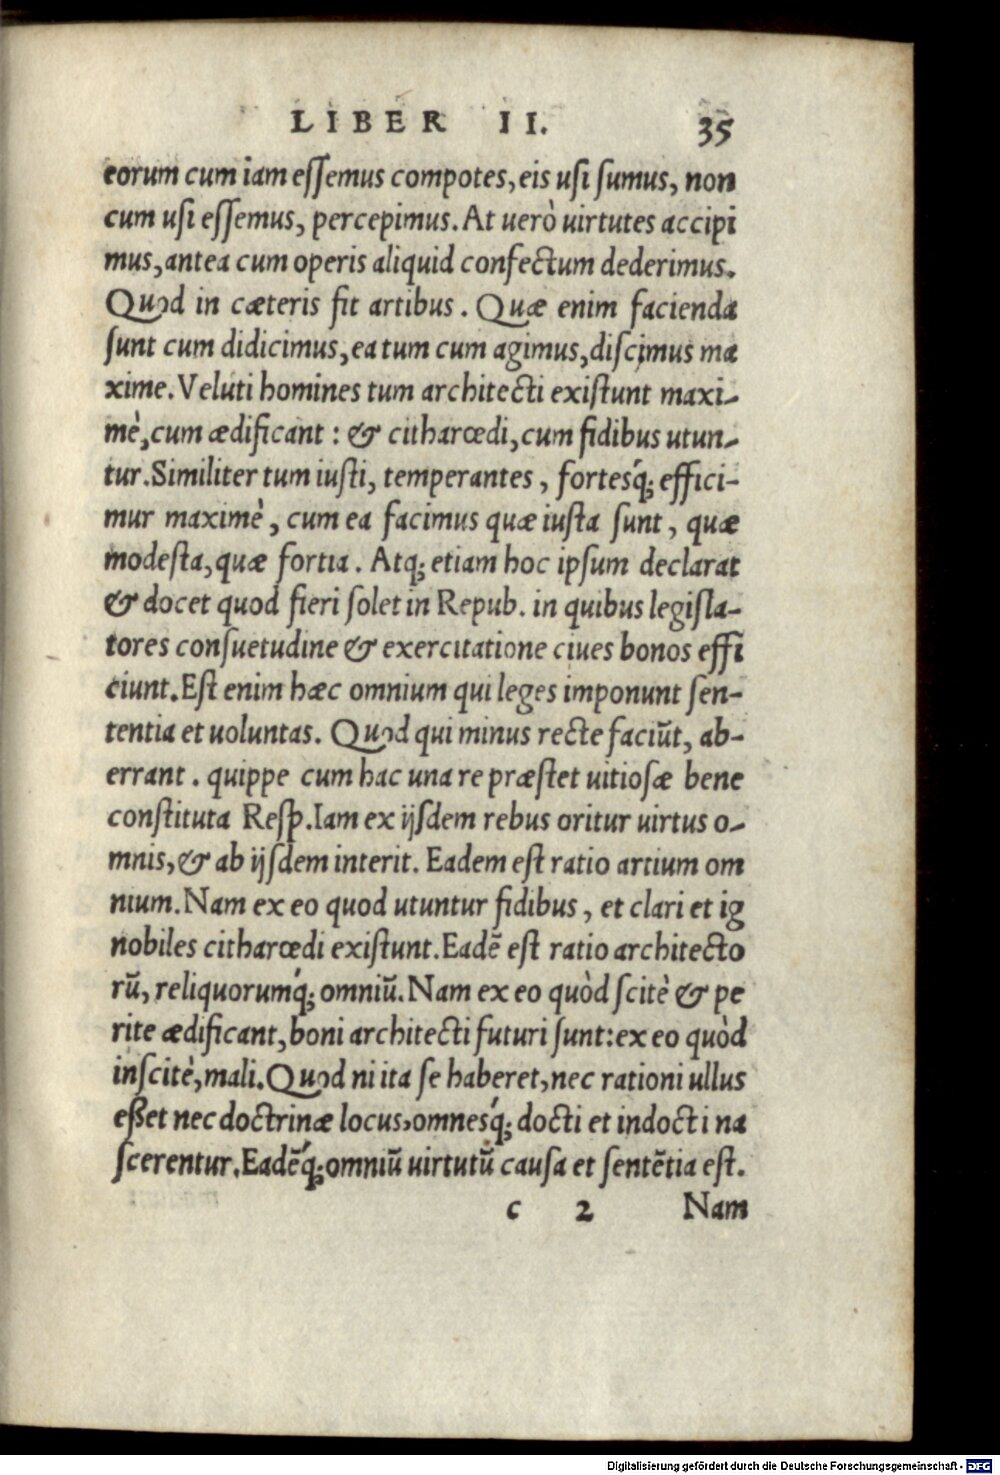 LIBER II. 35
eorum cum iam eſſemus compotes, eis uſi ſumus, non
cum uſi eſſemus, percepimus. At uerò uirtutes accipi
mus, antea cum operis aliquid confectum dederimus.
Quod in cæteris fit artibus. Quæ enim facienda
ſunt cum didicimus, ea tum cum agimus, diſcimus ma
xime. Veluti homines tum architecti exiſtunt maxi-
mè, cum ædificant: & citharœdi, cum fidibus utun-
tur. Similiter tum iuſti, temperantes, forteśq; effici-
mur maximè, cum ea facimus quæ iuſta ſunt, quæ
modeſta, quæ fortia. Atq; etiam hoc ipſum declarat
& docet quod fieri ſolet in Repub. in quibus legiſla-
tores conſuetudine & exercitatione ciues bonos effi
ciunt. Eſt enim hæc omnium qui leges imponunt ſen-
tentia et uoluntas. Quod qui minus recte faciūt, ab-
errant. quippe cum hac una re præſtet uitioſæ bene
conſtituta Reſp. Iam ex ijſdem rebus oritur uirtus o-
mnis, & ab ijſdem interit. Eadem eſt ratio artium om
nium. Nam ex eo quod utuntur fidibus, et clari et ig
nobiles citharœdi exiſtunt. Eadē eſt ratio architecto
rū, reliquorumq́; omniū. Nam ex eo quòd ſcitè & pe
rite ædificant, boni architecti futuri ſunt: ex eo quòd
inſcitè, mali. Quod ni ita ſe haberet, nec rationi ullus
eßet nec doctrinæ locus, omnesq́; docti et indocti na
ſcerentur. Eadēq́; omniū uirtutū cauſa et ſentētia eſt.
c 2 Nam
Digitalisierung gefördert durch die Deutsche Forschungsgemeinschaft - DFG